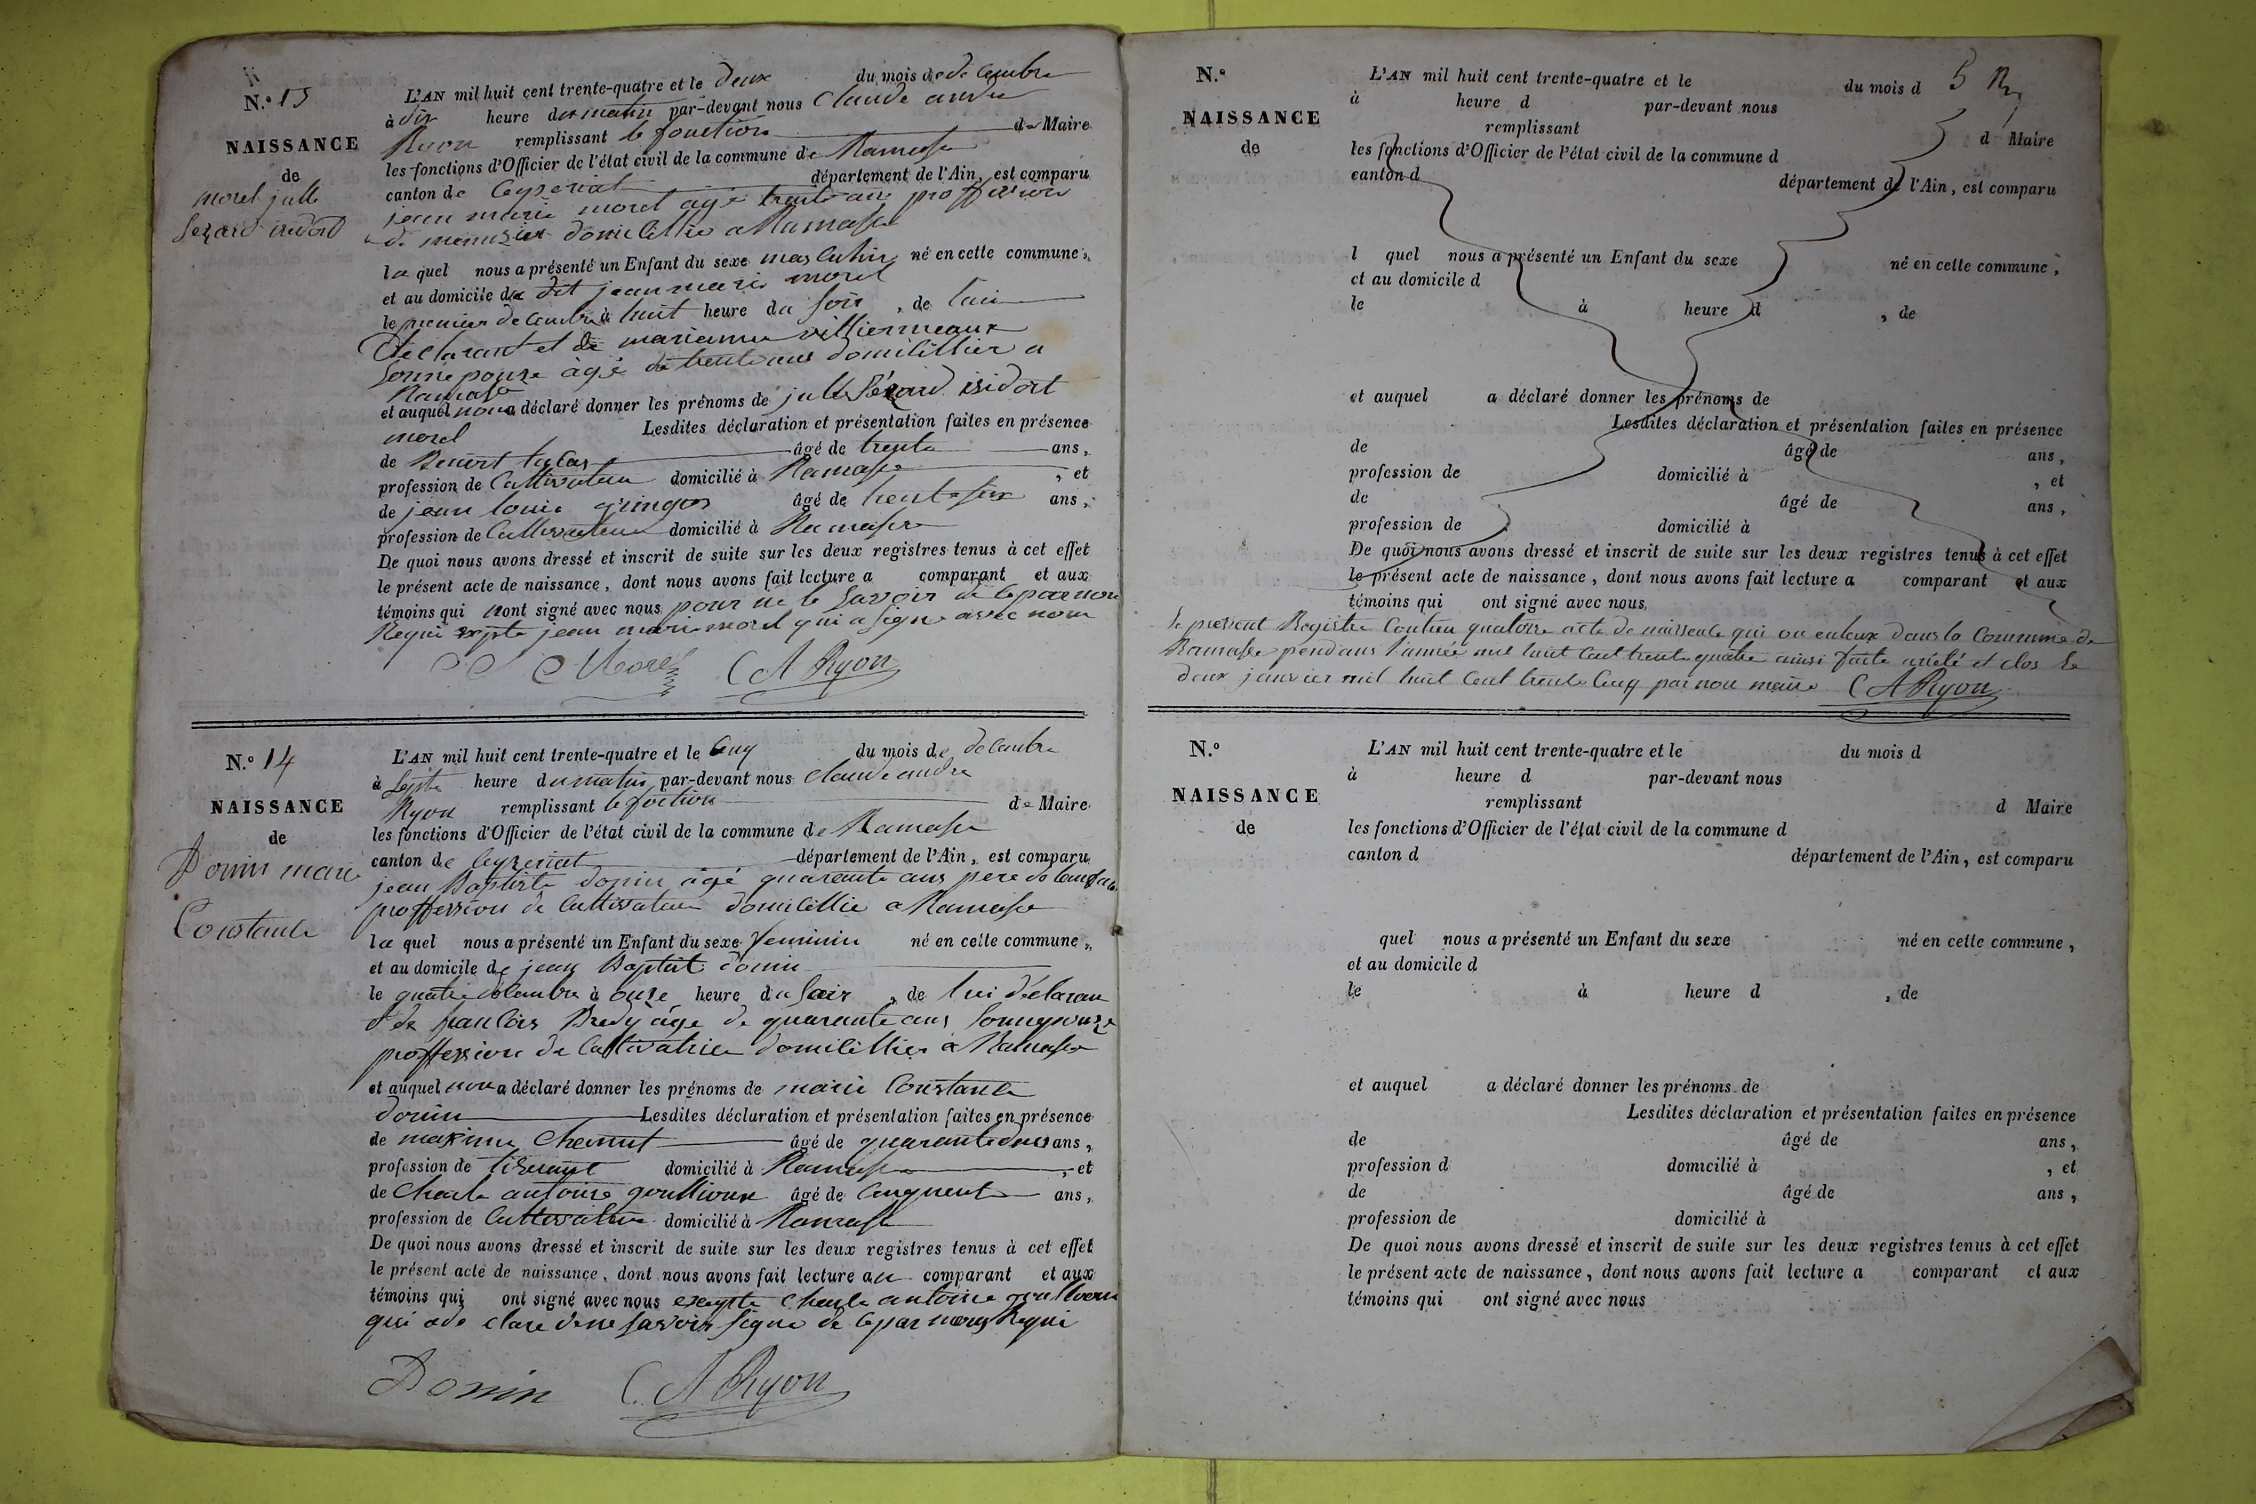 N.º 13
NAISSANCE
de
morel julle
Serard isidort
L'AN mil huit cent trente-quatre et le deux du mois de decembre
à dix heure du matin par-devant nous Claude andre
Ryon remplissant le fonction de Maire
les fonctions d'Officier de l'état civil de la commune de Ramasse
canton de Ceyzeriat département de l'Ain, est comparu
jean marie morel agé trente ans proffession
de menusier domicillie a Ramasse
le quel nous a présenté un Enfant du sexe masculin né en cette commune,
et au domicile du dit jean marie morel
le premier decembre à huit heure du soir, de lui
declarant et de marianne villiermeaux
sonnepouze âgé de trente ans domicillier a
Ramasse
et auquel nous a déclaré donner les prénoms de julle Sérard isidort
morel Lesdites déclaration et présentation faites en présence
de Benoit âgé de trente ans,
profession de Cultivateur domicilié à Ramasse, et
de jean louis gringoz âgé de ans,
profession de Cultivateur domicilié à Ramasse
De quoi nous avons dressé et inscrit de suite sur les deux registres tenus à cet effet
le présent acte de naissance, dont nous avons fait lecture a comparant et aux
témoins qui nont signé avec nous pour ne le savoir de ce par nous
Requi exepte jean marie morel qui a signe avec nous
Morel C A Ryon
N.º 14
NAISSANCE
de
Donin marie
Constance
L'AN mil huit cent trente-quatre et le Cinq du mois de decembre
à Septe heure du matin par-devant nous Claude andre
Ryon remplissant le foction de Maire
les fonctions d'Officier de l'état civil de la commune de Ramasse
canton de Ceyzeriat département de l'Ain, est comparu
jean Baptiste donin âgé quarante ans pere de lenfan
proffession de Cultivateur domicillie a Ramasse
le quel nous a présenté un Enfant du sexe feminin né en cette commune,
et au domicile de jean Baptist donin
le quatre decembre à onze heure du Soir, de lui déclaran
et de francois Bredy âge de quarante ans Sonnepouze
proffession de Cultivatrice domicillier a Ramasse
et auquel nous a déclaré donner les prénoms de marie Constance
donin Lesdites déclaration et présentation faites en présence
de maxime Chanut âgé de quarante deux ans,
profession de tiserant domicilié à Ramasse, et
de Charle antoine goullioux âgé de Cinquente ans,
profession de Cultivateur domicilié à Ramasse
De quoi nous avons dressé et inscrit de suite sur les deux registres tenus à cet effet
le présent acte de naissance, dont nous avons fait lecture au comparant et aux
témoins qui ont signé avec nous exepte Charle antoine
qui a de clare de ne savoir signe de ce par nous Requi
Donin C A Ryon
N.º
NAISSANCE
de
L'AN mil huit cent trente-quatre et le du mois d
à heure d par-devant nous
remplissant d Maire
les fonctions d'Officier de l'état civil de la commune d
canton d département de l'Ain, est comparu
l quel nous a présenté un Enfant du sexe né en cette commune,
et au domicile d
le à heure d, de
et auquel a déclaré donner les prénoms de
Lesdites déclaration et présentation faites en présence
de âgé de ans,
profession de domicilié à, et
de âgé de ans,
profession de domicilié à
De quoi nous avons dressé et inscrit de suite sur les deux registres tenus à cet effet
le présent acte de naissance, dont nous avons fait lecture a comparant et aux
témoins qui ont signé avec nous,
le present Registre Contien quatorze acte de naissence qui on eulieux dans la Commune de
Ramasse pendans l'année mil huit cent trente quatre ainsi faite arété et clos le
deux janvier mil huit Cent trente Cinq par nou maire C A Ryon
N.º
NAISSANCE
de
L'AN mil huit cent trente-quatre et le du mois d
à heure d par-devant nous
remplissant d Maire
les fonctions d'Officier de l'état civil de la commune d
canton d département de l'Ain, est comparu
quel nous a présenté un Enfant du sexe né en cette commune,
et au domicile d
le à heure d, de
et auquel a déclaré donner les prénoms de
Lesdites déclaration et présentation faites en présence
de âgé de ans,
profession d domicilié à, et
de âgé de ans,
profession de domicilié à
De quoi nous avons dressé et inscrit de suite sur les deux registres tenus à cet effet
le présent acte de naissance, dont nous avons fait lecture a comparant et aux
témoins qui ont signé avec nous